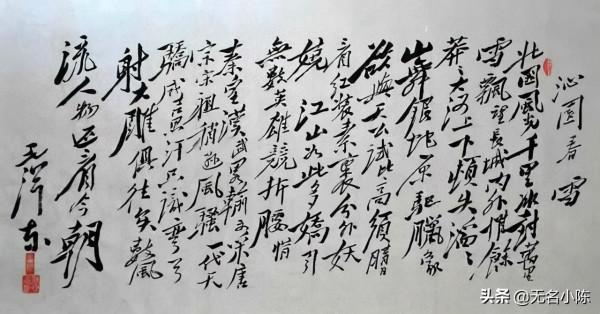 沁园春 雪
北國風光千里冰封萬里
雪飄望長城内外惟餘
莽々大河上下頓失滔々
山舞銀蛇原馳臘象
欲與天公試比高須晴日
看红裝素裹分外妖
嬈江山如此多嬌引
無數英雄競折腰惜
秦皇漢武略輸文采唐
宗宋祖稍遜風騷一代天
驕成吉思汗只識彎弓
射大雕俱往矣數風
流人物还看今朝
毛泽东
头条 @无名小陈